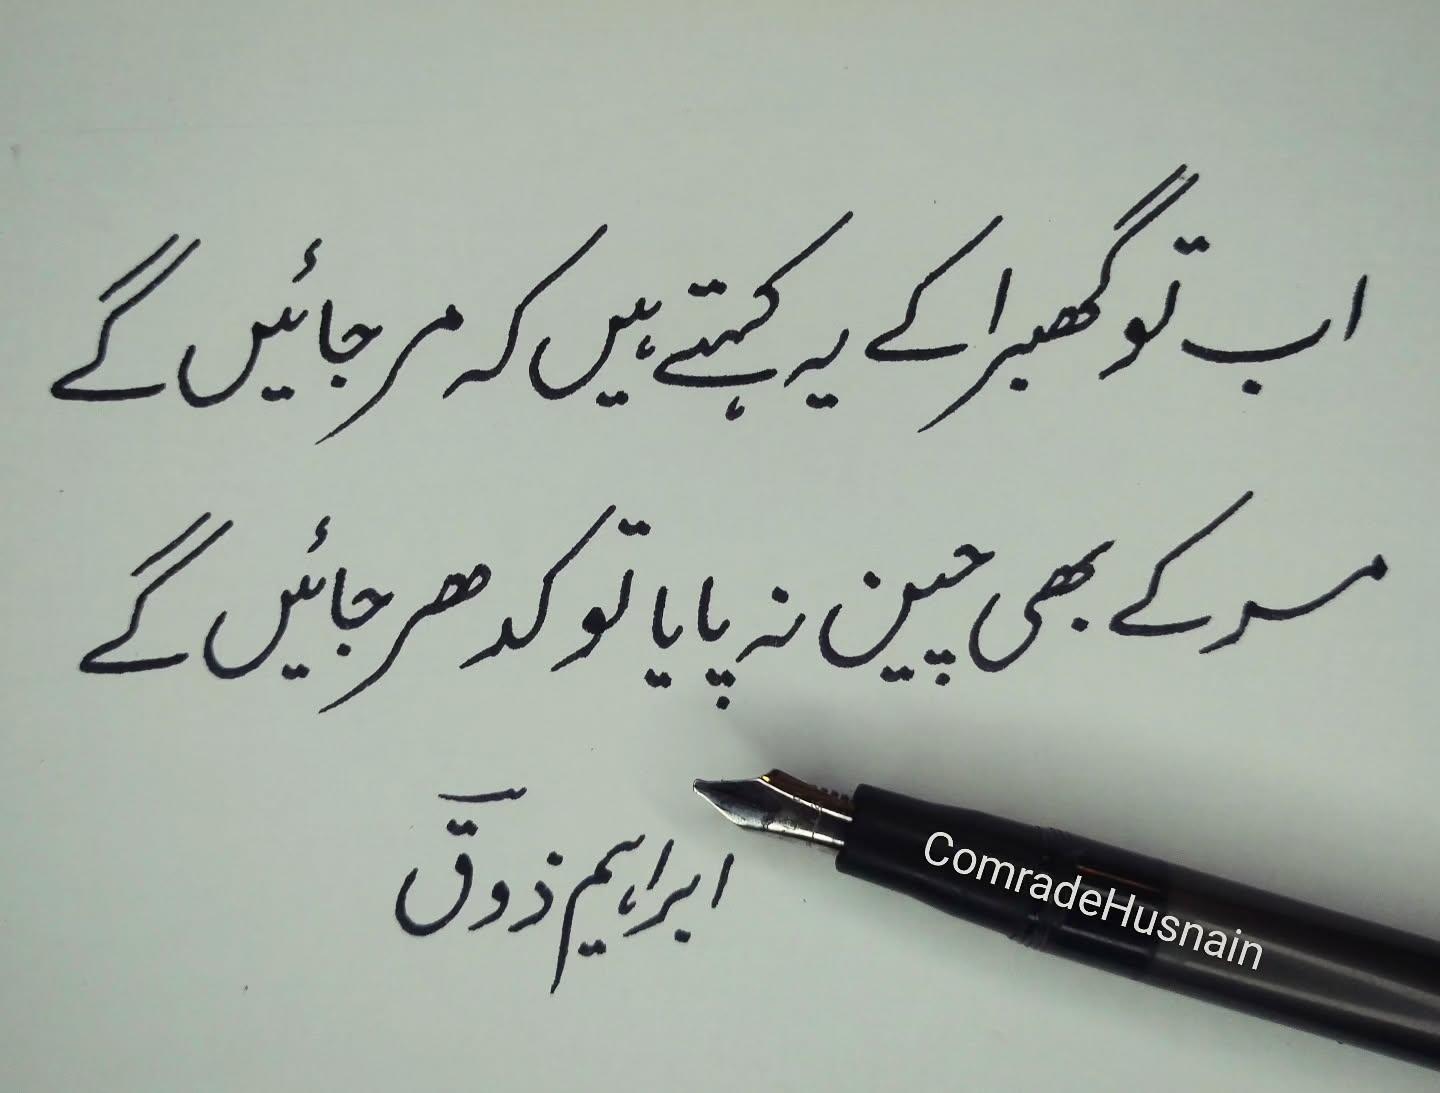 اب تو گھبرا کے یہ کہتے ہیں کہ مر جائیں گے
مر کے بھی چین نہ پایا تو کدھر جائیں گے
ابراہیم ذوقؔ
ComradeHusnain